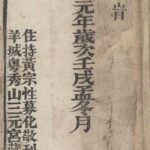 元年歲次壬戌孟冬月
住持黃宗性募化敬刊
羊城粵秀山三元宮藏